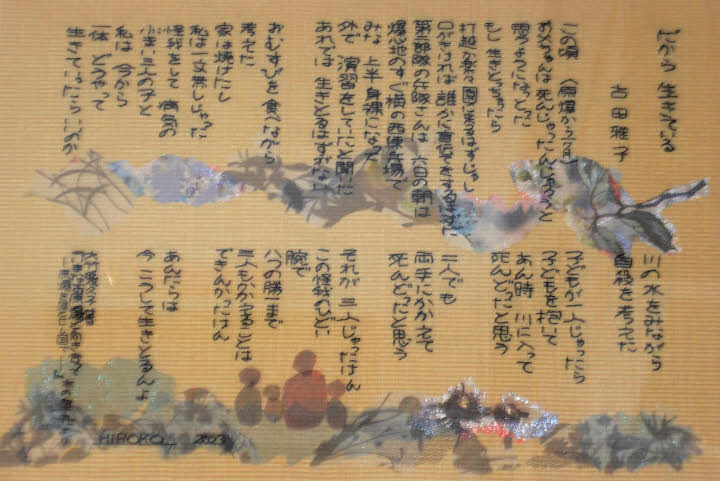 だから 生きている
吉田雅子
この頃 （原爆から一ヶ月）
お父ちゃんは死んじゃったんじゃろうと
思うようになっとった
もし 生きとっちゃったら
誰かに
第二部隊の兵隊さんは 六日の朝は
爆心地のすぐ横の西練兵場で
みな 上半身裸になって
外で 演習をしていたと聞いた
あれでは 生きとるはずがない
おむすびを 食べながら
考えた
家は焼けたし
私は一文無しじゃった
怪我をして 病気の
小まい三人の子と
私は 今から
一体 どうやって
生きていったらいいのか
川の水をみながら
自殺を考えた
子どもが一人じゃったら
子どもを抱いて
あん時 川に入って
死んどったと思う
二人でも
両手にかかえて
死んどったと思う
それが 三人じゃったけん
この怪我のひどい
腕で
八つの勝一まで
三人もかかえることは
できんかったけん
あんたらは
今 こうして生きとるんよ
HIROKO 2003